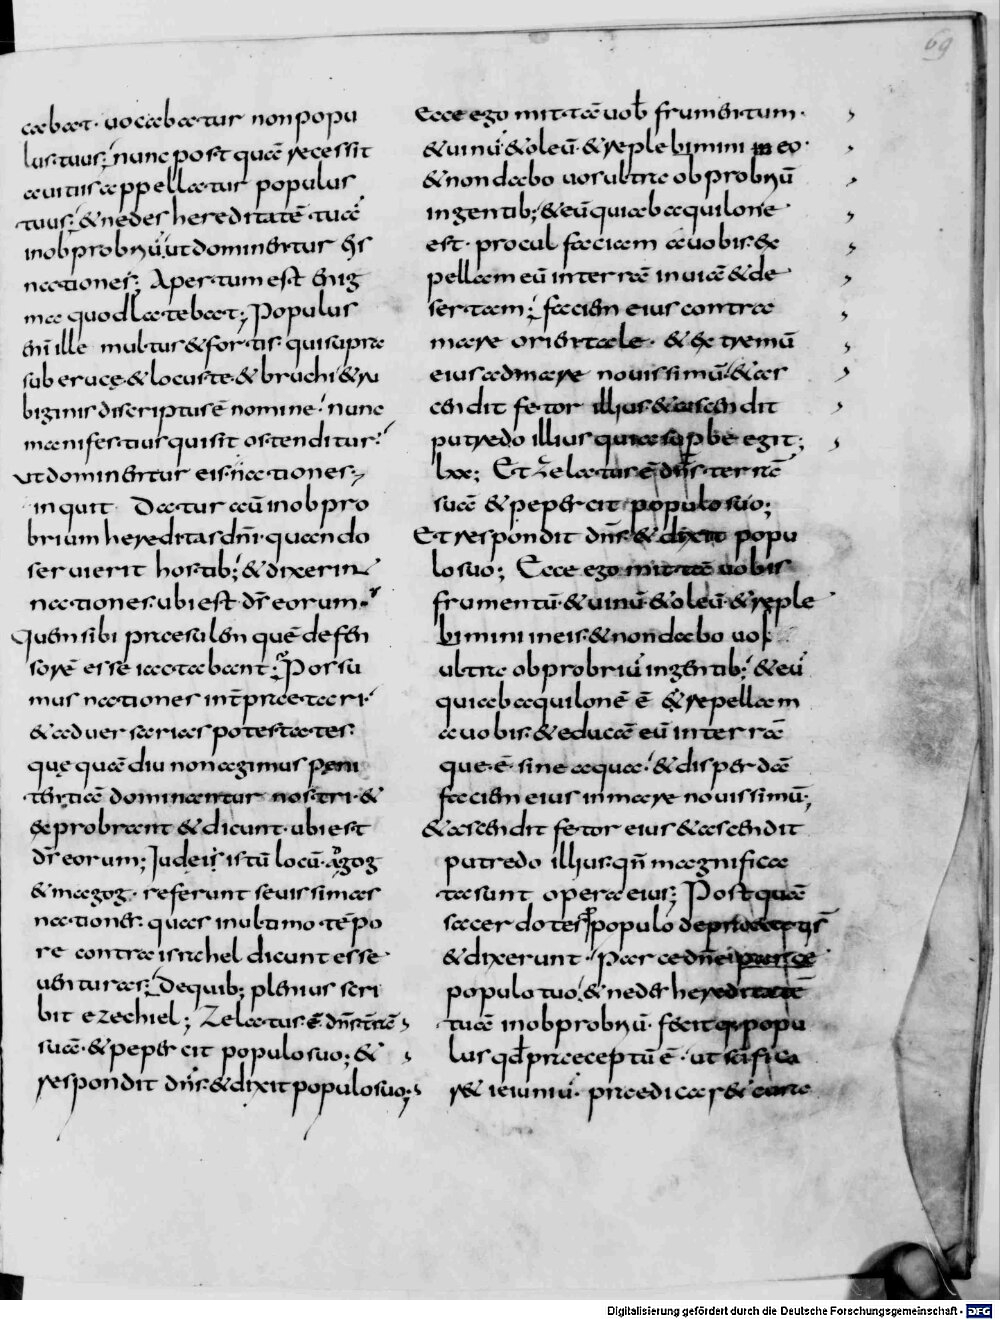 69
cabat. uocabatur non popu
lus tuus; nunc postquā recessit
auitus appellatur populus
tuus; & nedes hereditatē tuā
inobprobriū ut dominentur eis
nationes; Apertum est enig
ma quod latebat; Populus
enī ille multus & fortis. qui supra
sub eruce & locusta & bruchi & ru
biginis discriptus ē nomine. nunc
manifestius qui sit ostenditur;
Ut dominentur eis nationes;
inquit Datur autē inobpro
brium hereditas dn̄i. quando
seruierit hostib; & dixerint
nationes ubi est ds̄ eorum.
Quem sibi praesulem quē defen
sorē esse iactabant; Possu
mus nationes int̄praetari
& aduersarias potestates.
que quādiu non agimus peni
tentiā dominantur nostri &
exprobrant & dicunt. ubi est
ds̄ eorum; Judei istū locū. ad gog
& magog. referunt seuissimas
nationes. quas inultimo tēpo
re contra israhel dicunt esse
uenturas; De quib; plenius scri
bit ezechiel; Zelatus ē dn̄s t̄rā
suā. & pepercit populo suo; &
respondit dn̄s. & dixit populo suo;
Ecce ego mittā uob frumentum.
& uinū & oleū. & replebimini eo.
& non dabo uos ultra obprobriū
ingentib; & eū qui ab aquilone
est. procul faciam auobis. & ex
pellam eū interrā inuiā & de
sertam; faciem eius contra
mare orientale. & extremū
eius ad mare nouissimū. & as
cendit fetor illius & ascendit
putredo illius quia supbe egit;
lxx; Et zelatus ē dn̄s terrā
suā & pepercit populo suo;
Et respondit dn̄s & dixit popu
lo suo; Ecce ego mittā uobis
frumentū. & uinū & oleū. & reple
bimini ineis. & non dabo uos
ultra obprobriū ingentib; & eū
qui ab aquilonē ē & repellam
auobis. & educā eū interrā
que ē sine aqua. & disperdā
faciem eius inmare nouissimū;
& ascendit fetor eius & ascendit
putredo illius. qn̄ magnifica
ta sunt opera eius; Postquā
sacerdotes p populo
& dixerunt. Parce dn̄e
populo tuo. & neder hereditatē
tuā inobprobriū. fecit q popu
lus qd praeceptū ē. ut scifica
r& ieiuniū. praedicar &